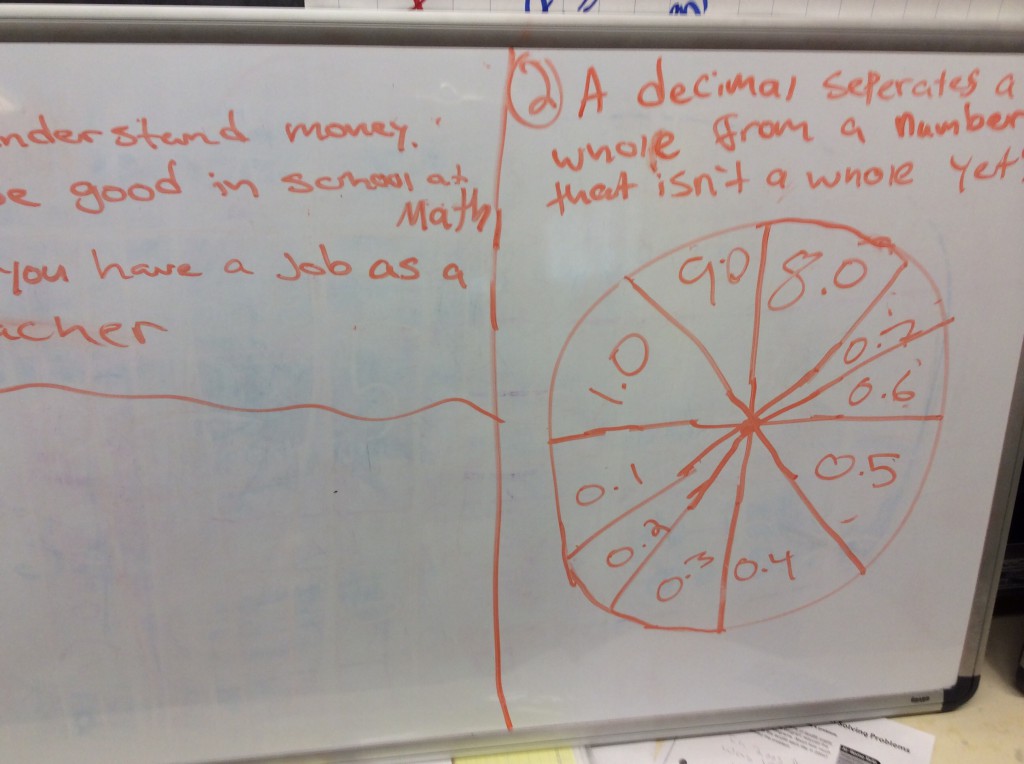 nderstand money.
e good in school at
Math
you have a Job as a
acher
2 A decimal seperates a
whole from a number
that isn't a whole yet!
9.0 8.0
1.0 0.7
0.6
0.1 0.5
0.2
0.3 0.4
olving Problems